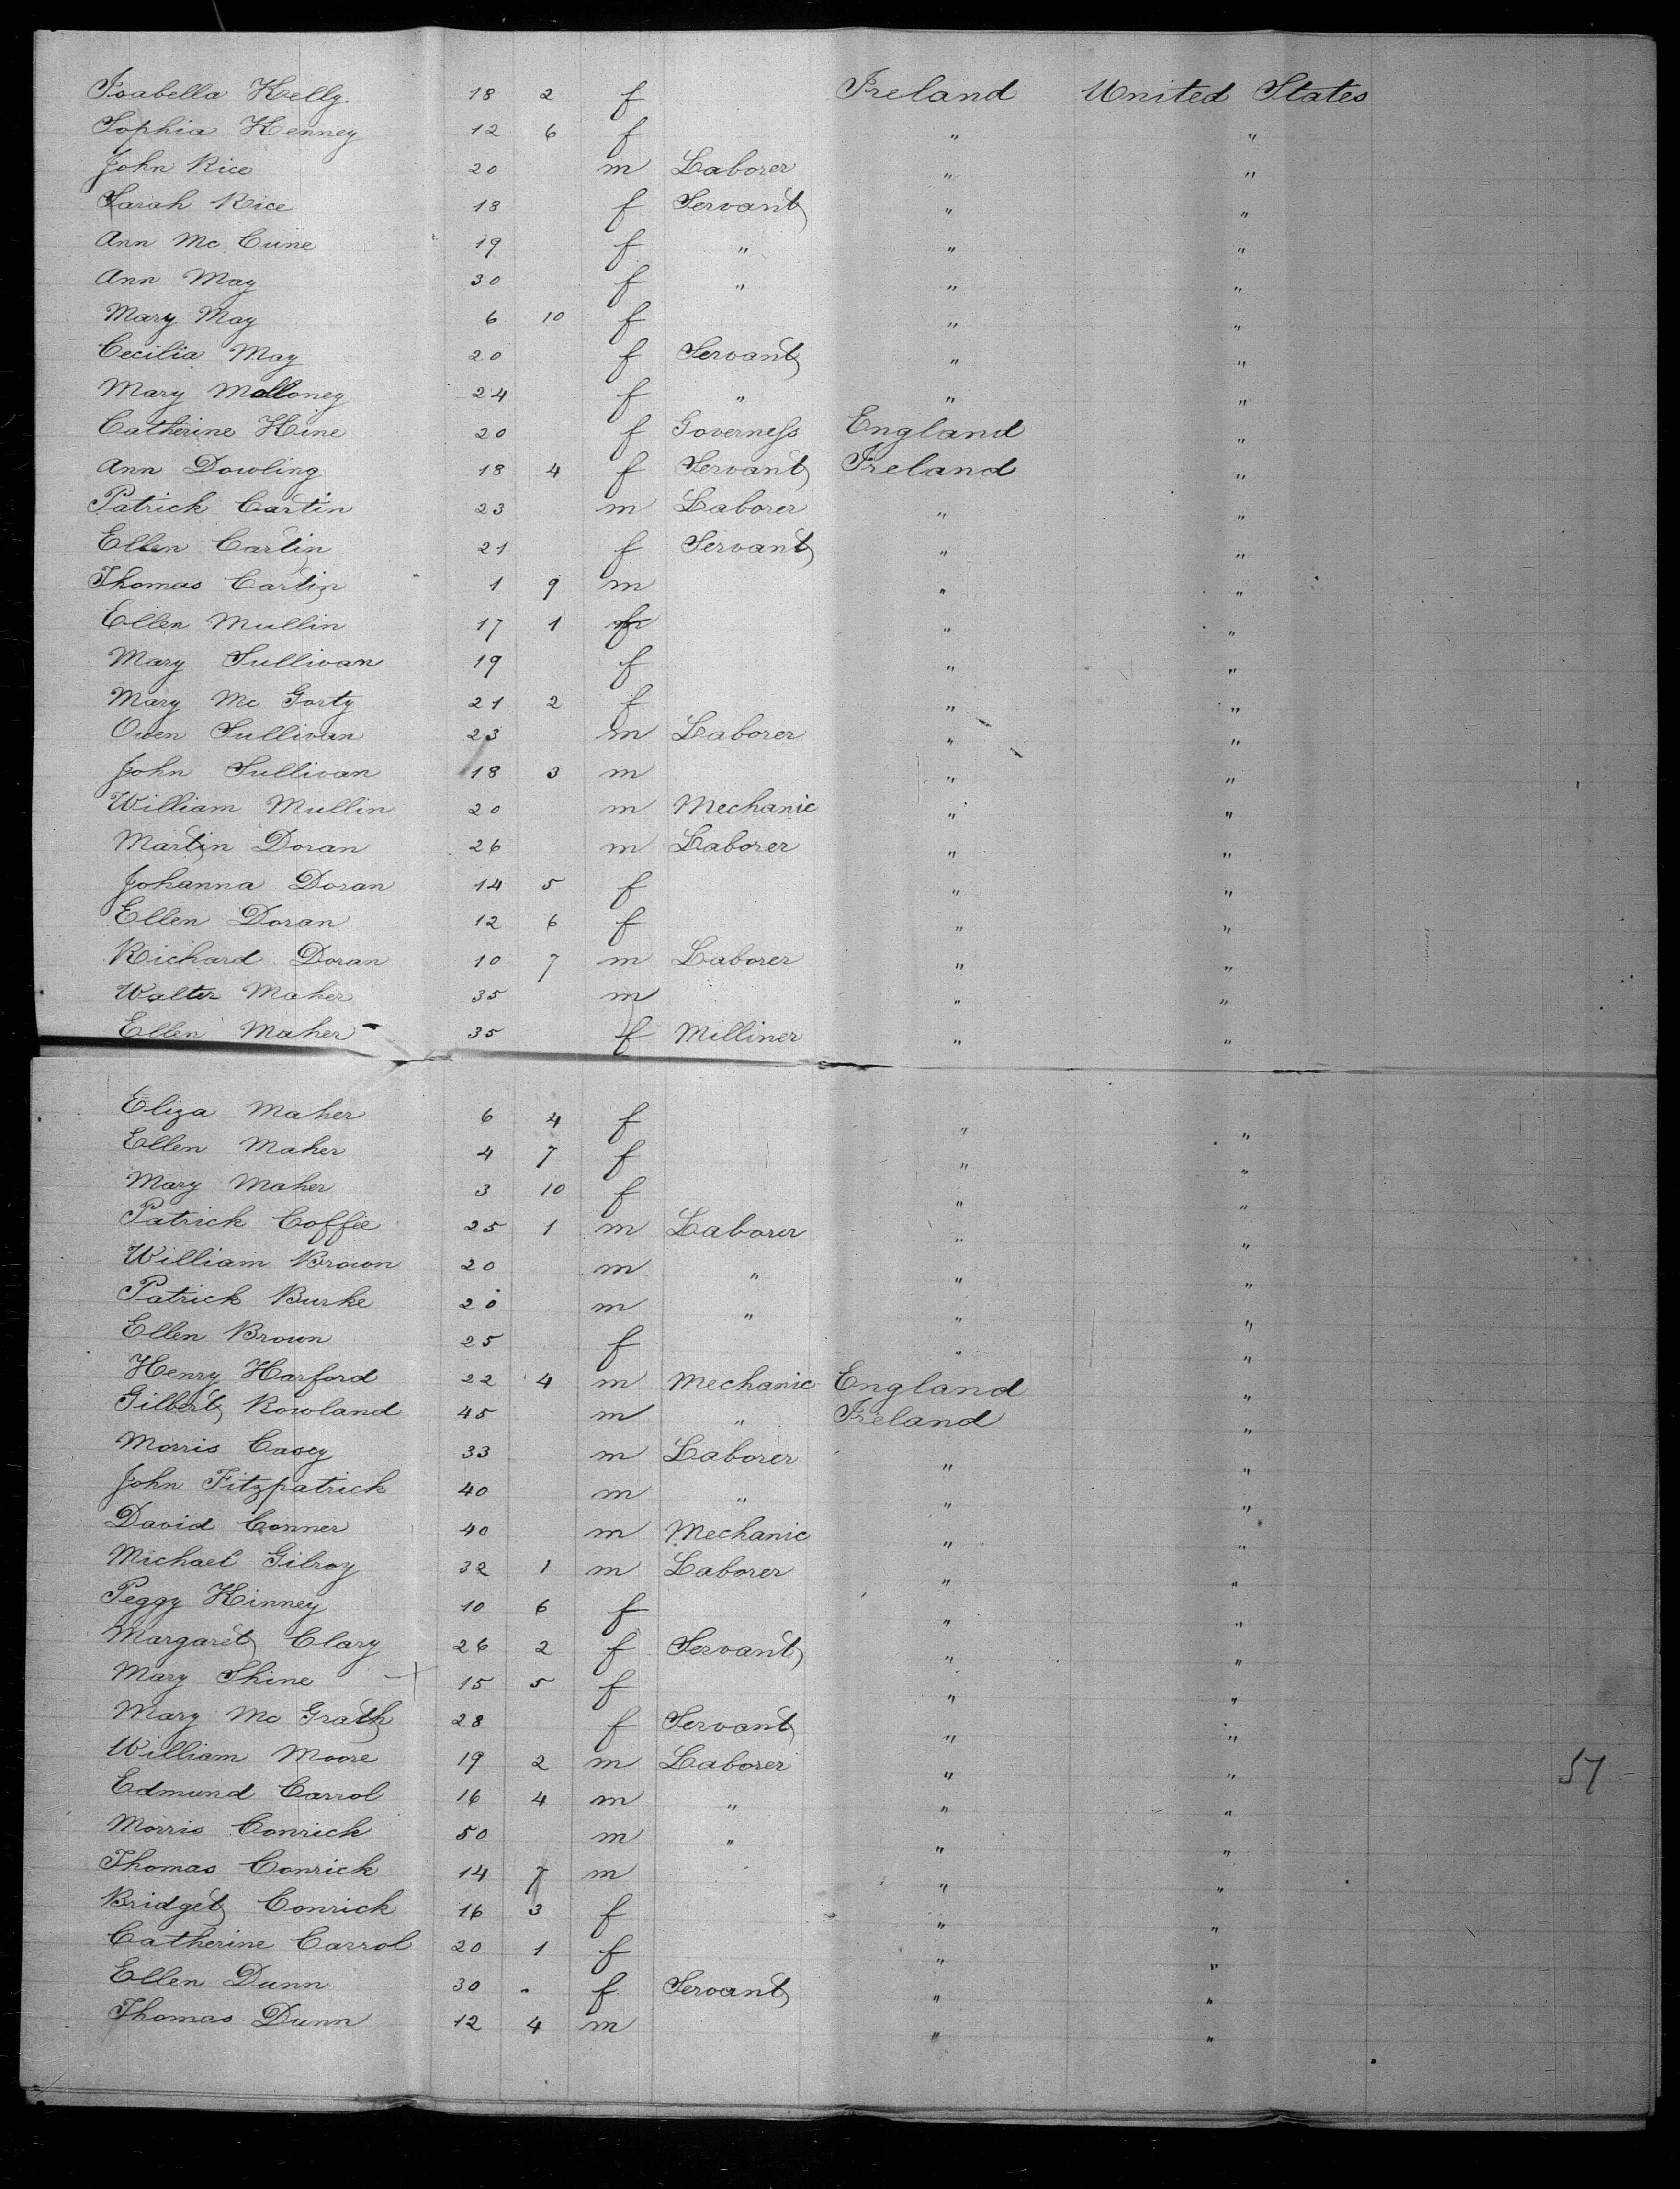 Isabella Kelly 18 2 f Ireland United States
Sophia Kenney 12 6 f " "
John Rice 20 m Laborer " "
Sarah Rice 18 f Servant " "
Ann Mc Cune 19 f " " "
Ann May 30 f " " "
Mary May 6 10 f " "
Cecilia May 20 f Servant " "
Mary Molloney 24 f " " "
Catherine Hine 20 f Governess England "
Ann Dowling 18 4 f Servant Ireland "
Patrick Cartin 23 m Laborer " "
Ellen Cartin 21 f Servant " "
Thomas Cartin 1 9 m " "
Ellen Mullin 17 1 f " "
Mary Sullivan 19 f " "
Mary Mc Gorty 21 2 f " "
Owen Sullivan 23 m Laborer " "
John Sullivan 18 3 m " "
William Mullin 20 m Mechanic " "
Martin Doran 26 m Laborer " "
Johanna Doran 14 5 f " "
Ellen Doran 12 6 f " "
Richard Doran 10 7 m Laborer " "
Walter Maher 35 m " "
Ellen Maher 35 f Milliner " "
Eliza Maher 6 4 f " "
Ellen Maher 4 7 f " "
Mary Maher 3 10 f " "
Patrick Coffie 25 1 m Laborer " "
William Brown 20 m " " "
Patrick Burke 20 m " " "
Ellen Brown 25 f " "
Henry Harford 22 4 m Mechanic England "
Gilbert Rowland 45 m " Ireland "
Morris Casey 33 m Laborer " "
John Fitzpatrick 40 m " " "
David Conner 40 m Mechanic " "
Michael Gilroy 32 1 m Laborer " "
Peggy Kinney 10 6 f " "
Margaret Clary 26 2 f Servant " "
Mary Shine 15 5 f " "
Mary Mc Grath 28 f Servant " "
William Moore 19 2 m Laborer " "
57
Edmund Carrol 16 4 m " " "
Morris Conrick 50 m " " "
Thomas Conrick 14 7 m " "
Bridget Conrick 16 3 f " "
Catherine Carrol 20 1 f " "
Ellen Dunn 30 f Servant " "
Thomas Dunn 12 4 m " "